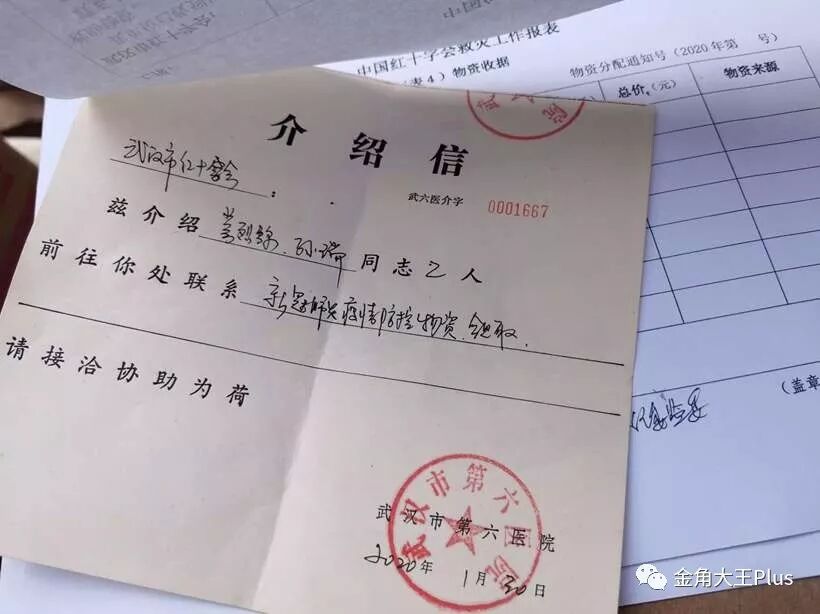 中国红十字会救灾工作报表
（表4）物资收据
物资分配通知号（2020年第 号）
总价（元） 物资来源
介绍信
武汉市红十字会：
武六医介字 0001667
兹介绍 孙瑞 同志乙人
前往你处联系新冠肺炎疫情防控物资领取.
请接洽协助为荷
（盖章
武汉市第六医院
武汉市第六医院
2020年1月30日
金角大王Plus